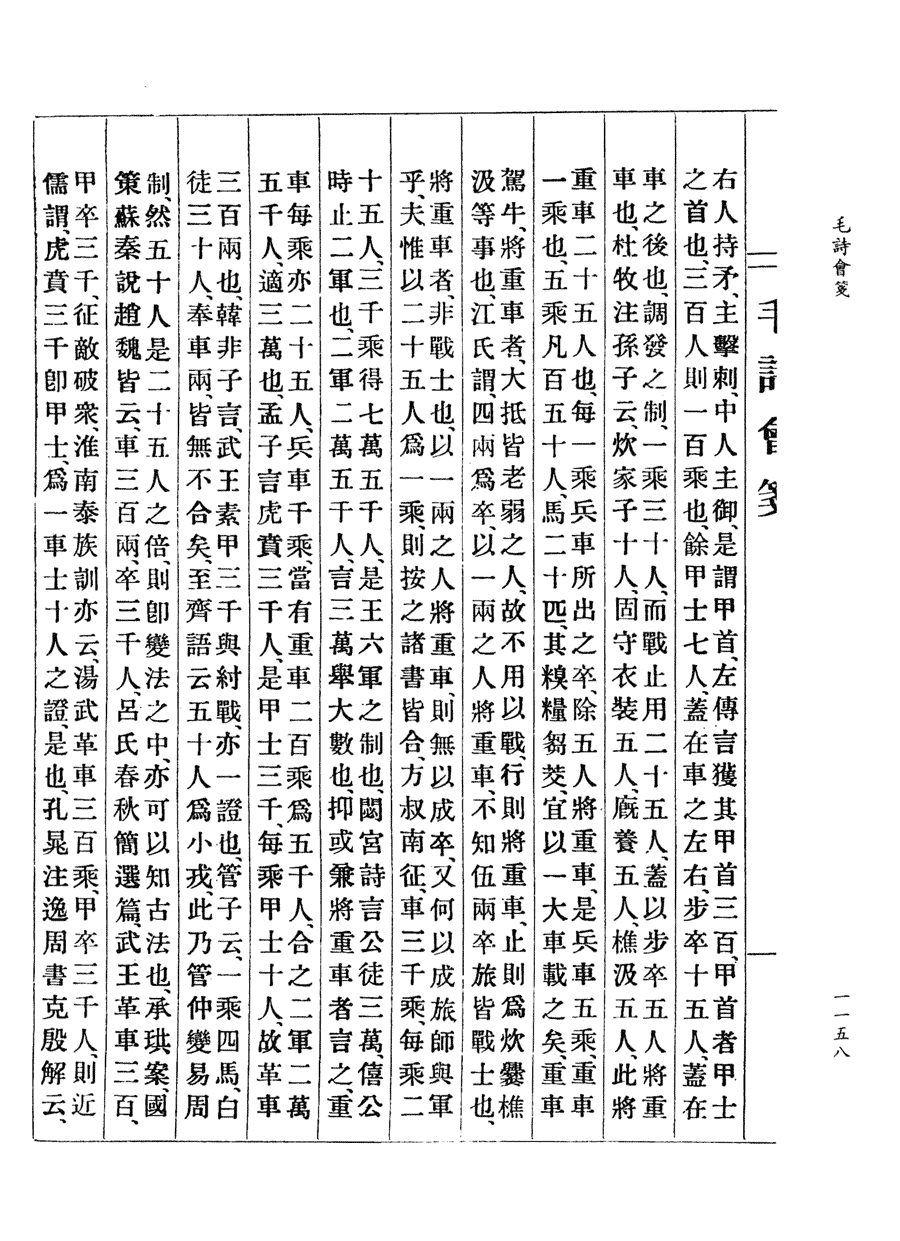 毛詩會箋
一一五八
毛詩會箋
右人持矛、主擊刺、中人主御、是謂甲首、左傳言獲其甲首三百、甲首者甲士
之首也、三百人則一百乘也、餘甲士七人、蓋在車之左右、步卒十五人、蓋在
車之後也、調發之制、一乘三十人、而戰止用二十五人、蓋以步卒五人將重
車也、杜牧注孫子云、炊家子十人、固守衣裝五人、廐養五人、樵汲五人、此將
重車二十五人也、每一乘兵車所出之卒、除五人將重車、是兵車五乘、重車
一乘也、五乘凡百五十人、馬二十匹、其糗糧芻茭、宜以一大車載之矣、重車
駕牛、將重車者、大抵皆老弱之人、故不用以戰、行則將重車、止則爲炊爨樵
汲等事也、江氏謂、四兩爲卒、以一兩之人將重車、不知伍兩卒旅皆戰士也、
將重車者、非戰士也、以一兩之人將重車、則無以成卒、又何以成旅師與軍
乎、夫惟以二十五人爲一乘、則按之諸書皆合、方叔南征、車三千乘、每乘二
十五人、三千乘得七萬五千人、是王六軍之制也、閟宮詩言公徒三萬、僖公
時止二軍也、二軍二萬五千人、言三萬舉大數也、抑或兼將重車者言之、重
車每乘亦二十五人、兵車千乘、當有重車二百乘、爲五千人、合之二軍二萬
五千人、適三萬也、孟子言虎賁三千人、是甲士三千、每乘甲士十人、故革車
三百兩也、韓非子言、武王素甲三千與紂戰、亦一證也、管子云、一乘四馬、白
徒三十人、奉車兩、皆無不合矣、至齊語云五十人爲小戎、此乃管仲變易周
制、然五十人是二十五人之倍、則卽變法之中、亦可以知古法也、承珙案、國
策蘇秦說趙魏皆云、車三百兩、卒三千人、呂氏春秋簡選篇、武王革車三百、
甲卒三千、征敵破衆、淮南泰族訓亦云、湯武革車三百乘、甲卒三千人、則近
儒謂、虎賁三千卽甲士、爲一車士十人之證、是也、孔晁注逸周書克殷解云、